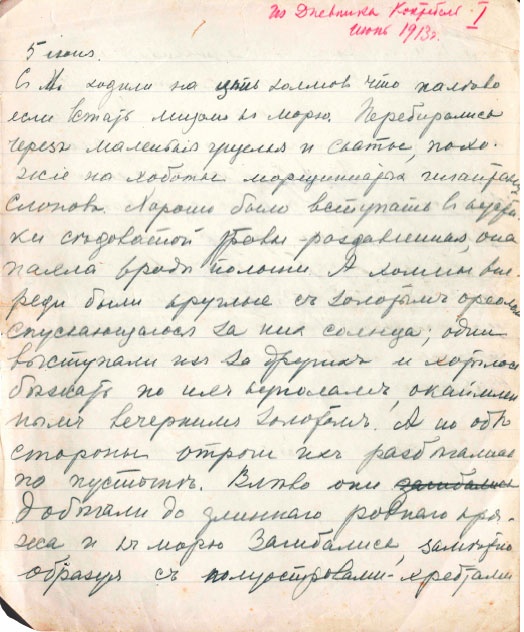 Из Дневника Коктебель I
Июнь 1913 г.
5 июня.
С М. ходили на цепь холмов что налево
если встать лицом къ морю. Перебирались
через маленькия ущелья и скаты, похо-
жіе на хоботы морщинистых гигантских
слоновъ. Хорошо было вступать в
ки седоватой травы раздавленная, она
пахла вроде полыни. А холмы впе-
реди были круглые съ золотымъ ореолом
спускающагося за них солнца; одни
выступали изъ за другихъ и хотелось
бежать по ихъ куполамъ, окаймлен
нымъ вечернимъ золотомъ. А по обе
стороны отроги ихъ разбегались
по пустыне. Влево они загибались
добегали до длиннаго ровнаго кря-
жа и къ морю загибались,
образуя съ полуостровами-хребтами